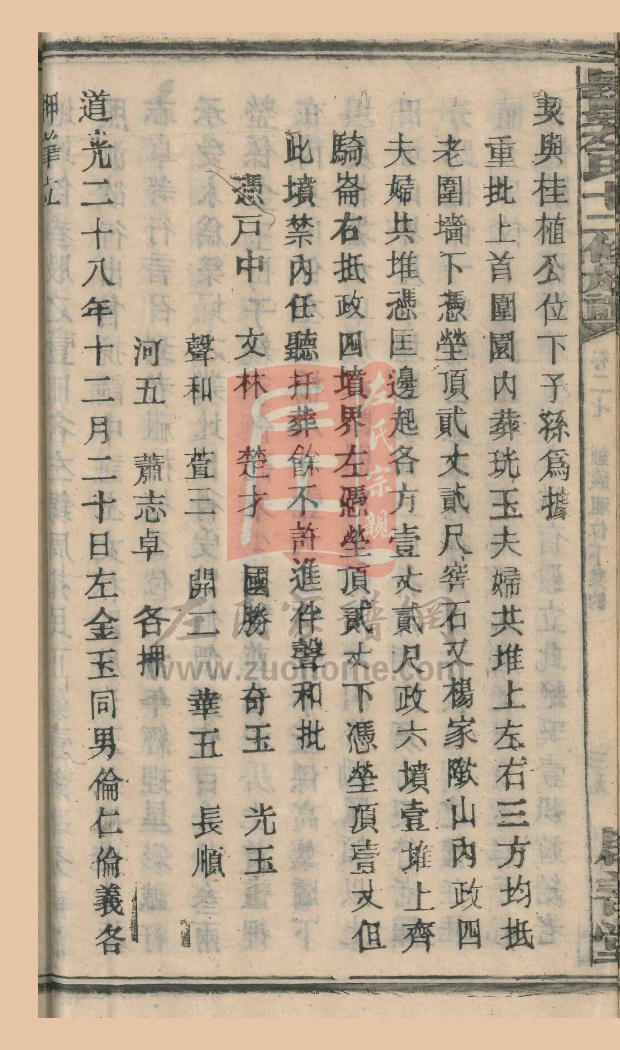 契與桂植公位下子孫爲據
重批上首圍園內葬珖玉夫婦共堆上左右三方均抵
老圍墻下憑塋頂貳丈貳尺窖石又楊家墩山內政四
夫婦共堆憑匡邊起各方壹丈貳尺政六墳壹堆上齊
騎崙右抵政四墳界左憑塋頂貳丈下憑塋頂壹丈但
此墳禁內任聽扦葬餘不許進仵聲和批
憑戸中 文林 楚才 國勝 奇玉 光玉
聲和 萱三 開二 華五 長順
河五 蕭志卓 各押
道光二十八年十二月二十日左金玉同男倫仁倫義各
押筆立
左氏十二修族譜
卷二七
左氏宗親
左氏家譜網
www.zuohome.com